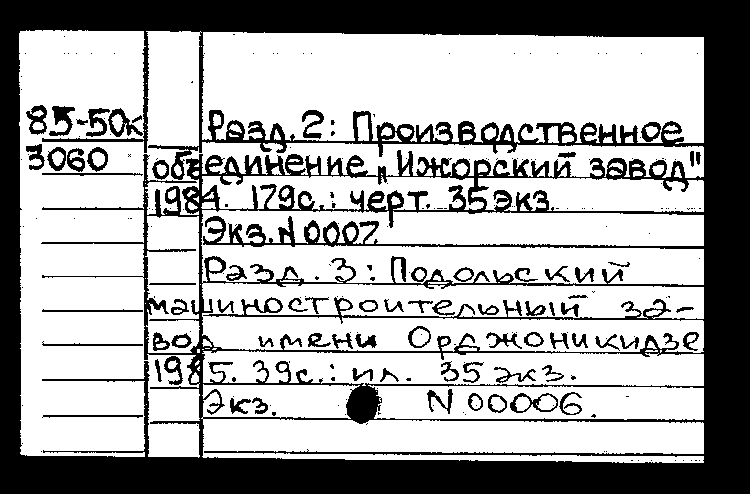 85-50к Разд.2: Производственное
3060 объединение „Ижорский завод"
1984. 179с.: черт. 35экз.
Экз.N0007.
Разд. 3: Подольский
машиностроительный за-
вод имени Орджоникидзе
1985. 39с.: ил. 35 экз.
Экз. N 00006.